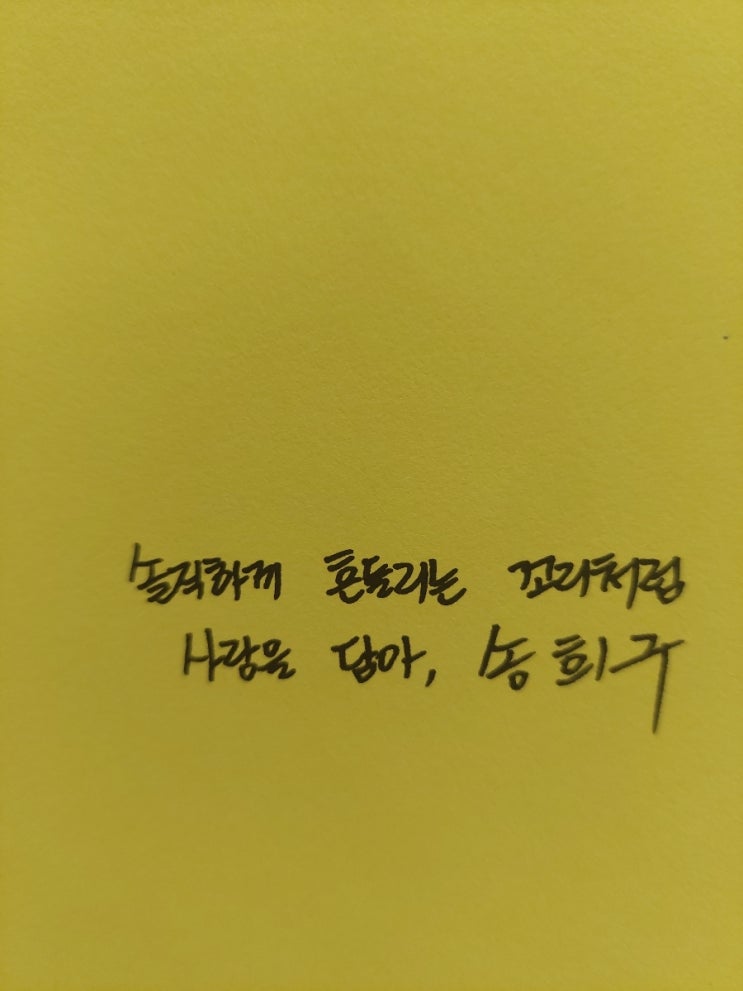 솔직하게 흔들리는 꼬리처럼
사랑을 담아, 송희구